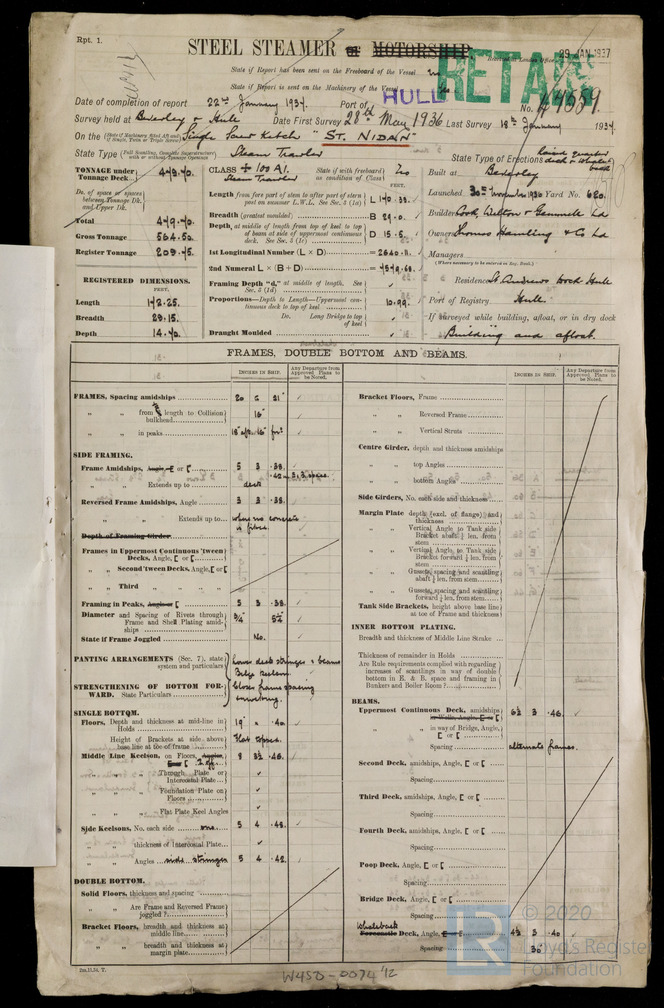 Rpt. 1.
STEEL STEAMER or MOTORSHIP
29 JAN 1937
RETAIN
State if Report has been sent on the Freeboard of the Vessel
State if Report is sent on the Machinery of the Vessel
HULL
Date of completion of report 22nd January 1937. Port of
No. 44559.
Survey held at Beverley & Hull Date First Survey 28th May 1936 Last Survey 18th January 1937.
On the (State if Machinery fitted Aft and if Single, Twin or Triple Screw) Single Screw Ketch "ST. NIDAN"
State Type (Full Scantling, Complete Superstructure with or without Tonnage Openings) Steam Trawler
State Type of Erections Raised quarter deck & Whaleback
TONNAGE under Tonnage Deck 449.40.
Do. of space or spaces between Tonnage Dk. and Upper Dk.
Total 449.40.
Gross Tonnage 564.50.
Register Tonnage 209.45.
REGISTERED DIMENSIONS.
FEET.
Length 142.25.
Breadth 29.15.
Depth 14.40.
CLASS + 100 A1. Steam Trawler
State if with freeboard as condition of Class No
FEET.
Length from fore part of stem to after part of stern post on summer L.W.L. See Sec. 3 (1a) L 140.33.
Breadth (greatest moulded) B 29.0.
Depth, at middle of length from top of keel to top of beam at side of uppermost continuous deck. See Sec. 3 (1c) D 15.5.
1st Longitudinal Number (L × D)
2nd Numeral L × (B + D)
Framing Depth "d," at middle of length. See Sec. 3 (1d)
Proportions—Depth to Length—Uppermost continuous deck to top of keel 10.99.
Do. Long Bridge to top of keel
Draught Moulded
Built at Beverley
Launched 30th November 1936 Yard No. 620.
Builders Cook Welton & Gemmell Ld
Owners Thomas Hamling & Co Ld
Managers
(Where necessary to be entered in Reg. Book.)
Residence St Andrews Dock Hull
Port of Registry Hull.
If surveyed while building, afloat, or in dry dock
Building and afloat.
FRAMES, DOUBLE BOTTOM AND BEAMS.
INCHES IN SHIP.
Any Departure from Approved Plans to be Noted.
INCHES IN SHIP.
Any Departure from Approved Plans to be Noted.
FRAMES, Spacing amidships 20 & 21"
" " from length to Collision bulkhead 16"
" " in peaks
SIDE FRAMING.
Frame Amidships, Angle or [ 5 3 .38.
" " Extends up to deck
Reversed Frame Amidships, Angle 3 3 .38.
" " Extends up to where no concrete is fitted.
Depth of Framing Girder
Frames in Uppermost Continuous 'Tween Decks, Angle, [ or [
" " Second 'Tween Decks, Angle, [ or [
" " Third " "
Framing in Peaks, Angle or [ 5 3 .38.
Diameter and Spacing of Rivets through Frame and Shell Plating amidships 3/4" 5 1/4"
State if Frame Joggled No.
PANTING ARRANGEMENTS (Sec. 7), state system and particulars Lower deck stringer & beams
STRENGTHENING OF BOTTOM FORWARD. State Particulars Closer frame spacing
SINGLE BOTTOM.
Floors, Depth and thickness at mid-line in Holds 19 " .40.
Height of Brackets at side above base line at toe of frame
Middle Line Keelson, on Floors, Angles, [ or [ 2 off. 8 3½ .46.
" " Through Plate or Intercostal Plate
" " Foundation Plate on Floors
" " Flat Plate Keel Angles
Side Keelsons, No. each side one. 5 4 .48.
" " thickness of Intercostal Plate
" " Angles side stringer 5 4 .42.
DOUBLE BOTTOM.
Solid Floors, thickness and spacing
" " Are Frame and Reversed Frame joggled?
Bracket Floors, breadth and thickness at middle line
" " breadth and thickness at margin plate
Bracket Floors, Frame
" " Reversed Frame
" " Vertical Struts
Centre Girder, depth and thickness amidships
" " top Angles
" " bottom Angles
Side Girders, No. each side and thickness
Margin Plate depth (excl. of flange) and thickness
" " Vertical Angle to Tank side Bracket abaft ¼ len. from stem
" " Vertical Angle to Tank side Bracket forward ¼ len. from stem
" " Gussets, spacing and scantling abaft ¼ len. from stem
" " Gussets, spacing and scantling forward ¼ len. from stem
Tank Side Brackets, height above base line at toe of Frame and thickness
INNER BOTTOM PLATING.
Breadth and thickness of Middle Line Strake
Thickness of remainder in Holds
Are Rule requirements complied with regarding increases of scantlings in way of double bottom in E. & B. space and framing in Bunkers and Boiler Room?
BEAMS.
Uppermost Continuous Deck, amidships 6½ 3 .46.
" " in way of Bridge, Angle, [ or [
Spacing alternate frames.
Second Deck, amidships, Angle, [ or [
Spacing
Third Deck, amidships, Angle, [ or [
Spacing
Fourth Deck, amidships, Angle, [ or [
Spacing
Poop Deck, Angle, [ or [
Spacing
Bridge Deck, Angle, [ or [
Spacing
Whaleback
Forecastle Deck, Angle, 4½ 3 .40
Spacing 36"
W450-0074 1/2
© 2020
Lloyd's Register
Foundation